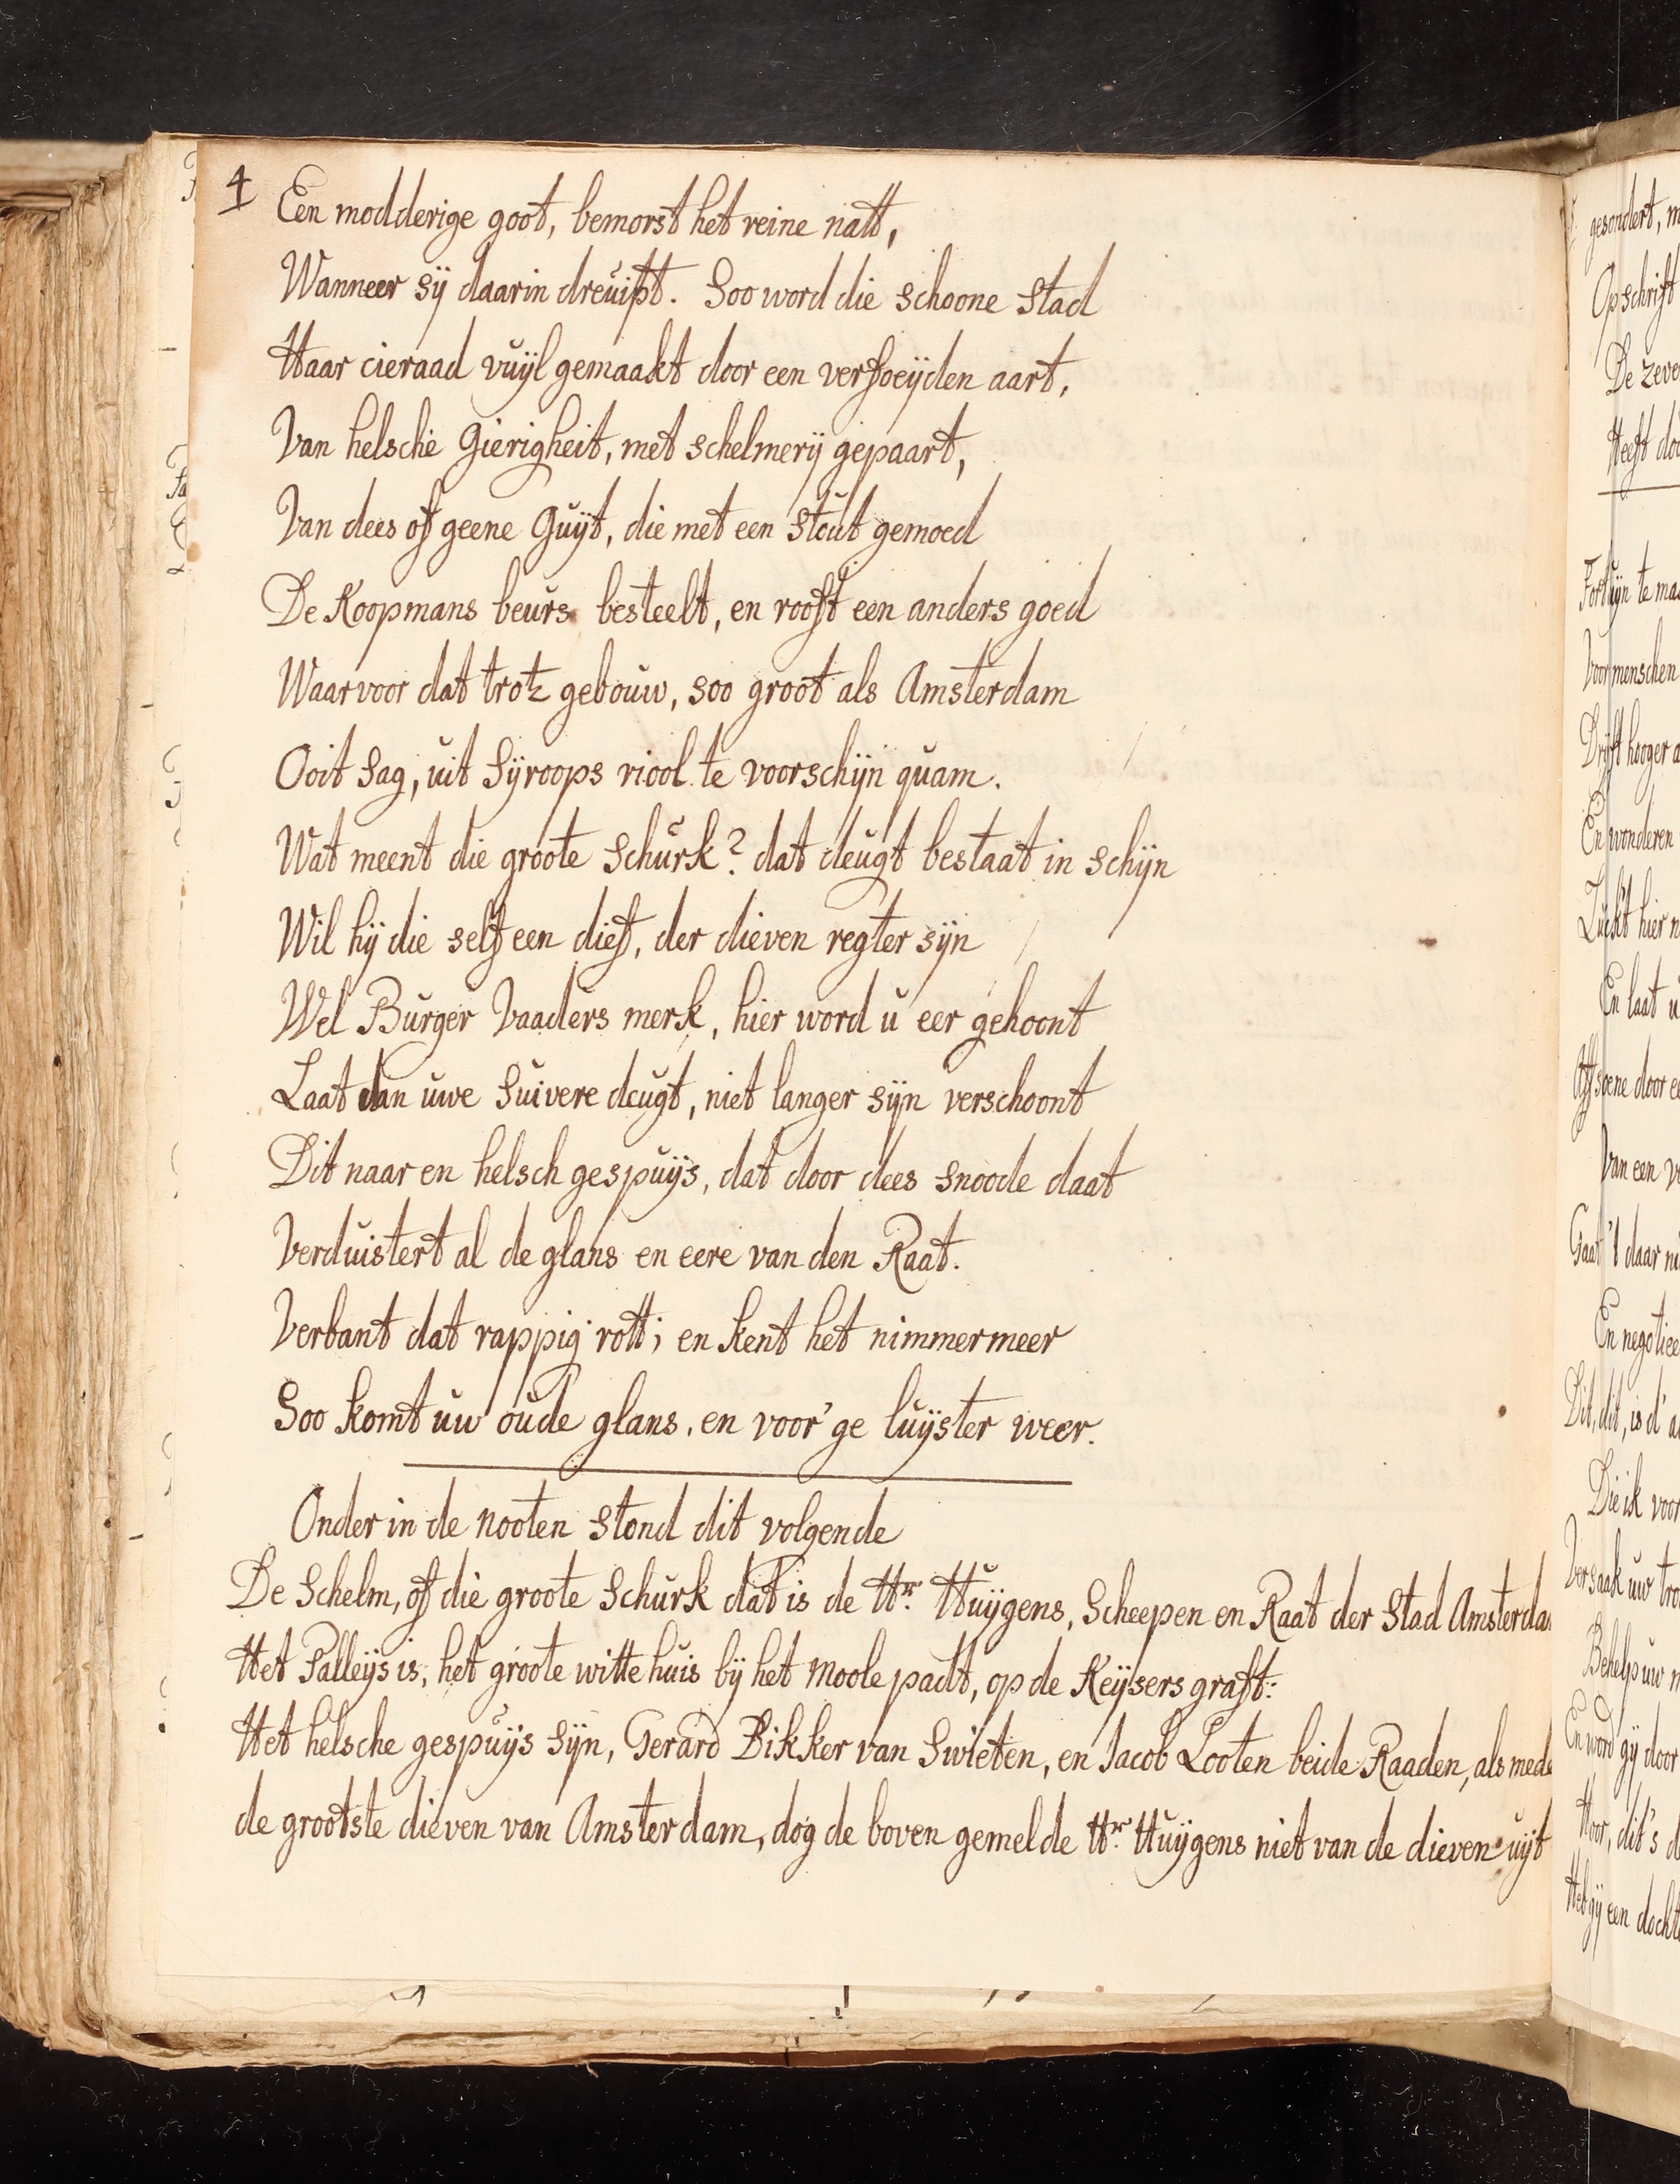 4
Een modderige goot, bemorst het reine natt,
Wanneer sÿ daarin dreuipt. Soo word die schoone Stad
Haar cieraad vuÿl gemaakt door een verfoeÿden aart,
Van helsche Gierigheit, met schelmerÿ gepaart,
Van dees of geene Guÿt, die met een stout gemoed
De Koopmans beurs besteelt, en rooft een anders goed
Waarvoor dat trotz gebouw, soo groot als Amsterdam
Ooit Sag, uit Sÿroops riool te voorschÿn quam.
Wat meent die groote Schurk? dat deugt bestaat in schÿn
Wil hÿ die self een dief, der dieven regter sÿn
Wel Burger Vaaders merk, hier word u eer gehoont
Laat dan uwe Suivere deugt, niet langer sÿn verschoont
Dit naar en helsch gespuÿs, dat door dees snoode daat
Verduistert al de glans en eere van den Raat.
Verbant dat rappig rott; en kent het nimmermeer
Soo komt uw oude glans, en voor'ge luÿster weer.
Onder in de nooten stond dit volgende
De Schelm, of die groote Schurk dat is de Hr. Huÿgens, Scheepen en Raat der Stad Amsterda
Het Palleÿs is, het groote witte huis bÿ het Moole padt, op de Keÿsers graft:
Het helsche gespuÿs sÿn, Gerard Bikker van Swieten, en Jacob Looten beide Raaden, als mede
de grootste dieven van Amsterdam, dog de boven gemelde Hr. Huÿgens niet van de dieven uÿt
gesondert, m
Opschrift
De zeve
Heeft do
Fortuÿn te ma
Voor menschen
Drÿft hooger a
En wonderen
Luckt hier n
En laat u
Van een v
Gaat 't daar ni
En negotiee
Dit, dit, is d' a
Die ik voor
Versaak uw tro
Behelp uw m
En word gÿ door
Hoor, dit's d
Heb gÿ een docht